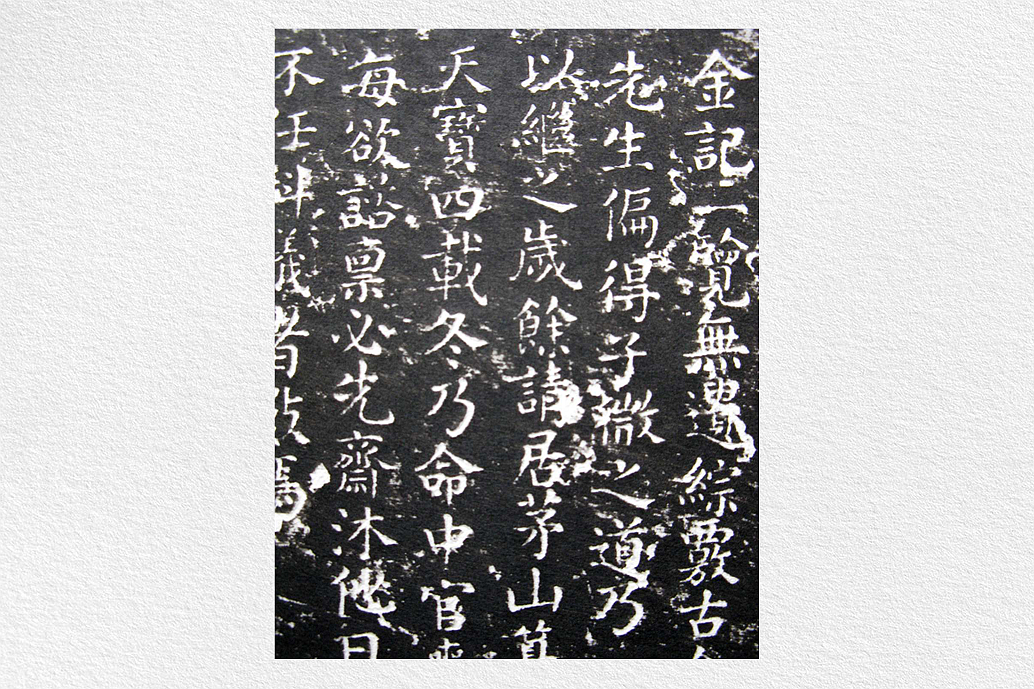 金記一覽無遺綜覈古
先生偏得子微之道乃
以繼之歲餘請居茅山纂
天寶四載冬乃命中官
每欲諮稟必先齋沐他日
不任科儀者數焉